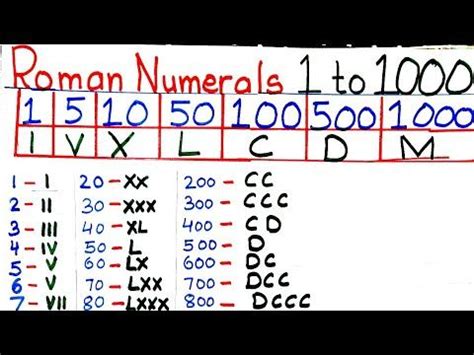 Roman Numerals 1 to 1000
1 5 10 50 100 500 1000
I V X L C D M
1 - I 20 - XX 200 - CC
2 - II 30 - XXX 300 - CCC
3 - III 40 - XL 400 - CD
4 - IV 50 - L 500 - D
5 - V 60 - LX 600 - DC
6 - V 70 - LXX 700 - DCC
7 - VII 80 - LXXX 800 - DCCC